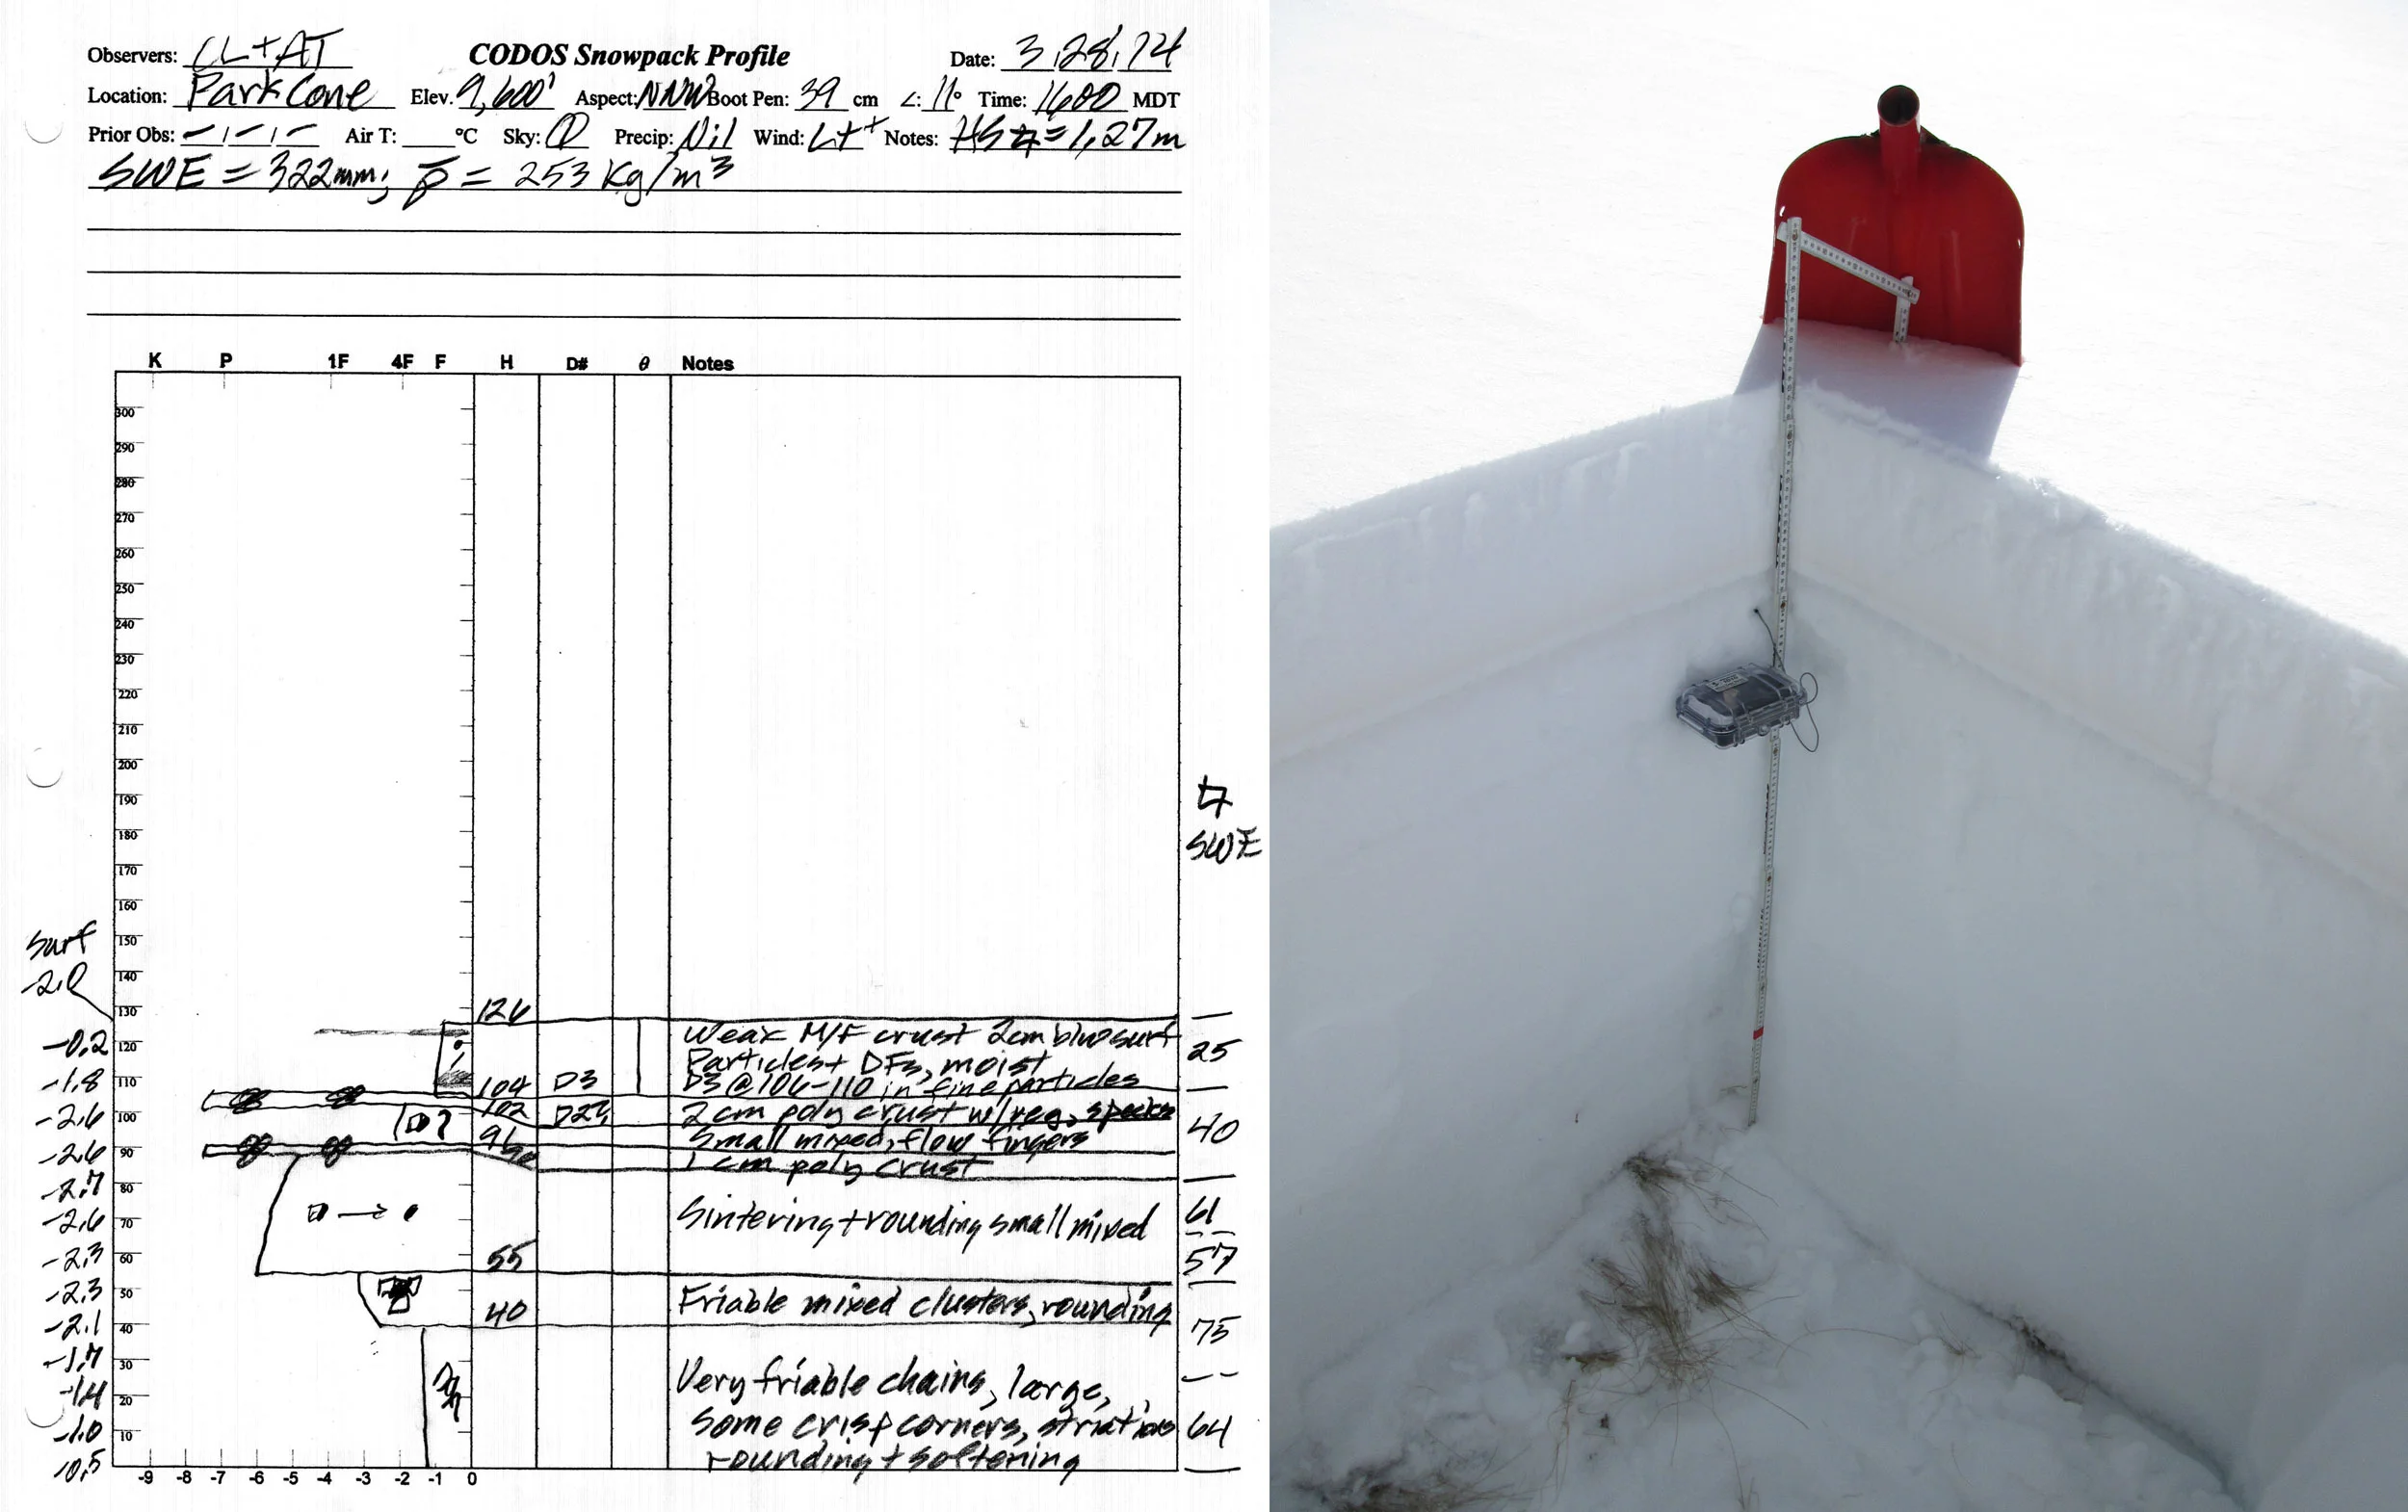 Observers: CL + AT CODOS Snowpack Profile Date: 3,28,14
Location: Park Cone Elev. 9,600' Aspect: NNW Boot Pen: 39 cm ∠: 11° Time: 1600 MDT
Prior Obs: – / – / – Air T: ____ °C Sky: Precip: Nil Wind: L++ Notes: HS = 1,27m
SWE = 322mm; ρ̅ = 253 Kg/m³
K P 1F 4F F H D# θ Notes
300
290
280
270
260
250
240
230
220
210
200
190
SWE
180
170
160
surf 150
-2.0 140
130 126
-0.2 120 Weak M/F crust 2cm blw surf 25
Particles + DFs, moist
-1.8 110 104 D3 D3 @ 106-110 in fine particles
-2.6 100 102 D2? 2 cm poly crust w/reg, specks 40
96 Small mixed, flow fingers
-2.6 90 1 cm poly crust
-2.7 80
-2.6 70 Sintering + rounding small mixed 61
-2.3 60 55 57
-2.3 50 Friable mixed clusters, rounding
-2.1 40 40 75
-1.7 30 Very friable chains, large,
-1.4 20 some crisp corners, striations 64
-1.0 10 rounding + softening
-0.5
-9 -8 -7 -6 -5 -4 -3 -2 -1 0